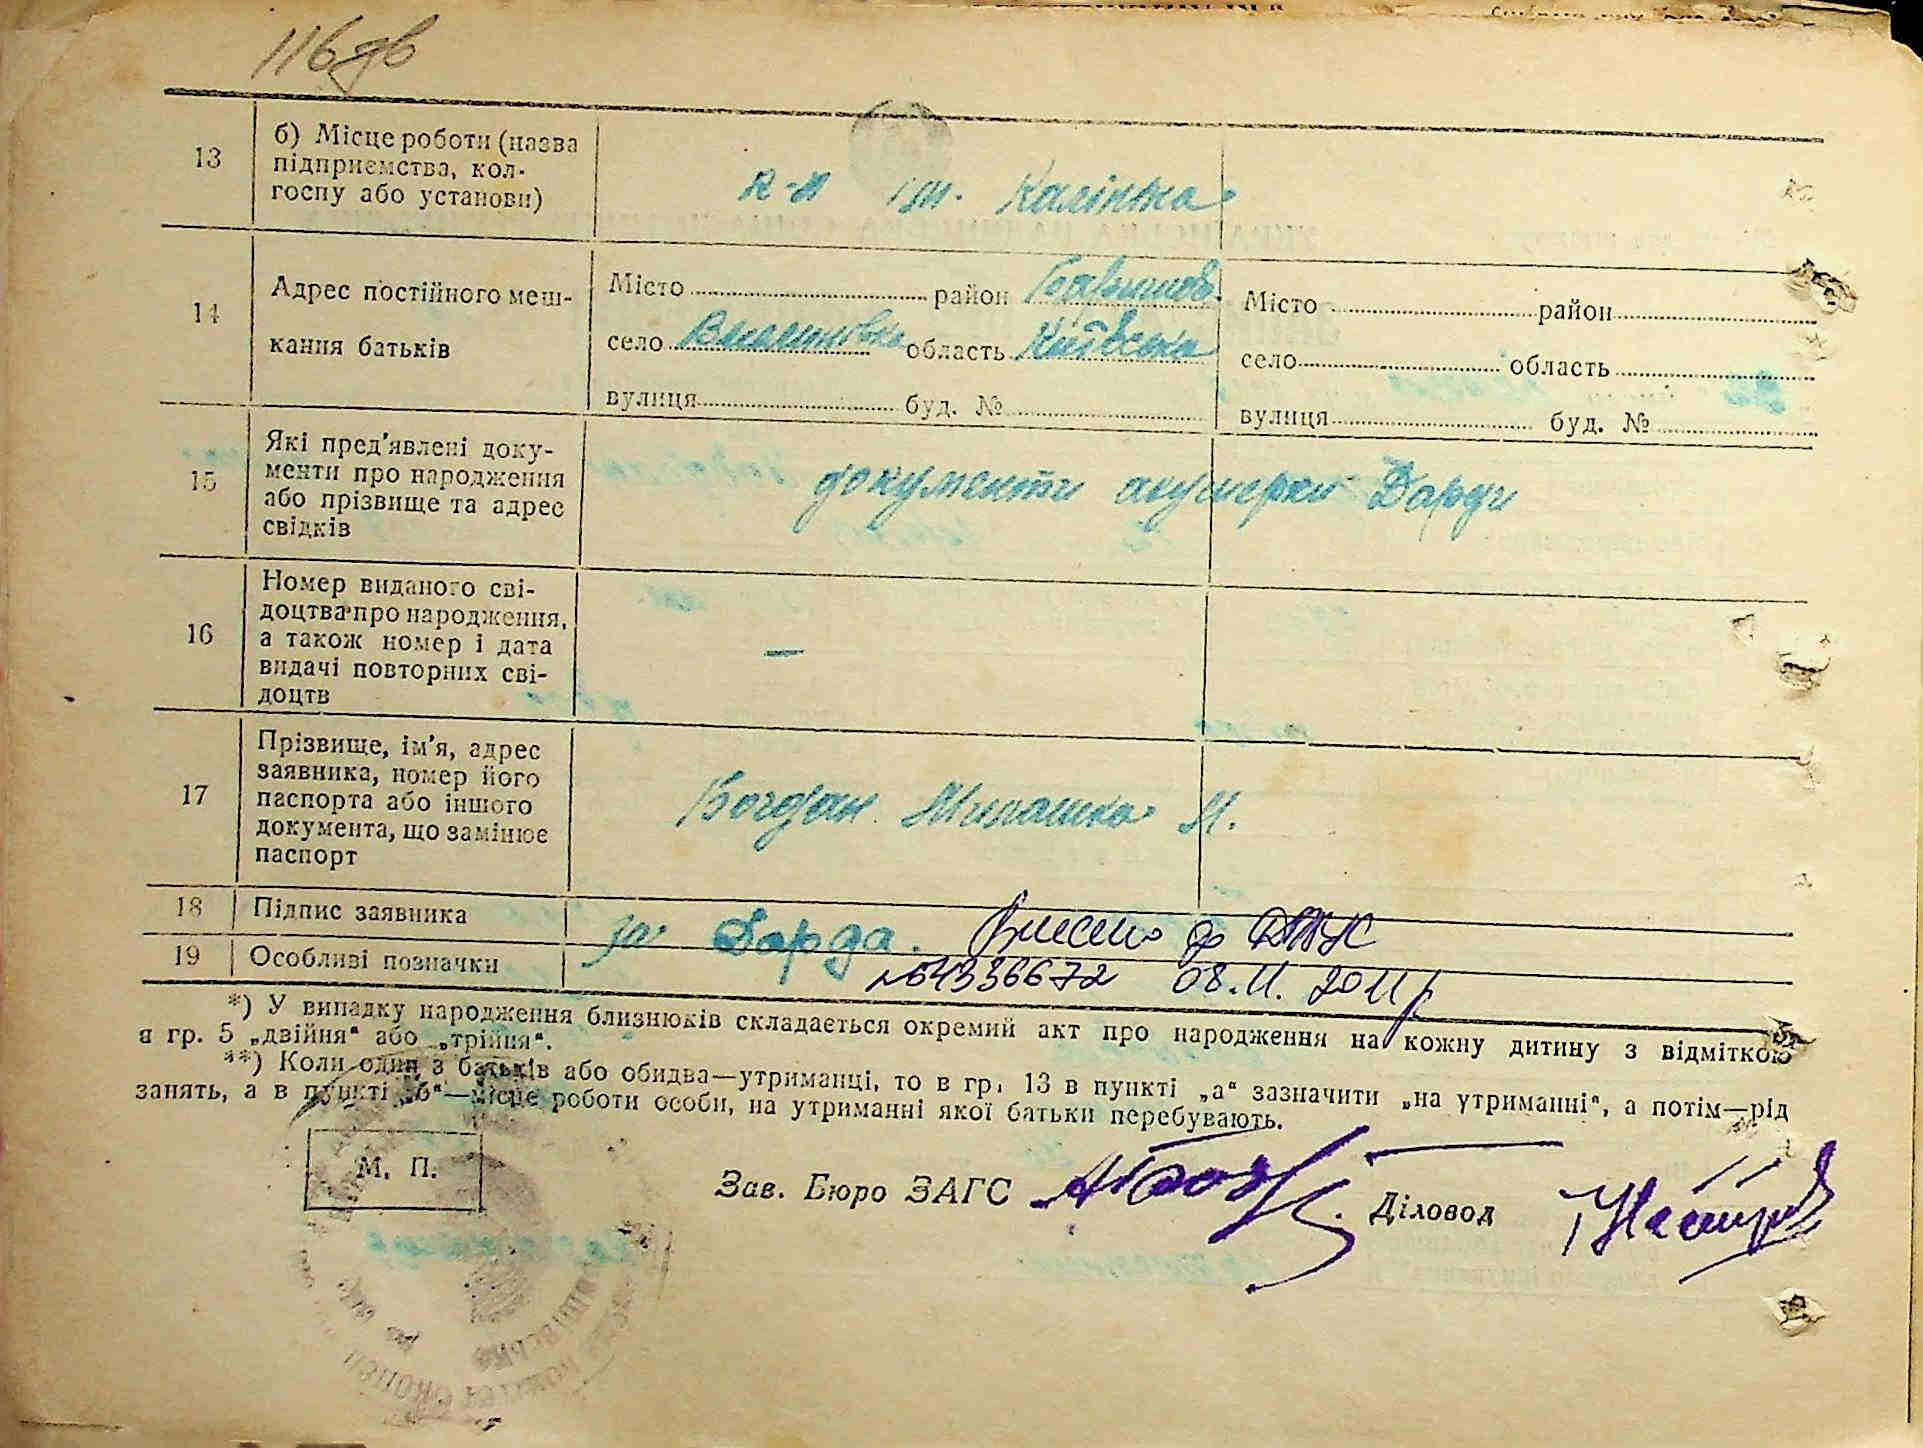 116 зв
13
б) Місце роботи (назва
підприємства, кол-
госпу або установи)
к-п ім. Калініна
14
Адрес постійного меш-
кання батьків
Місто район
село область Київська
вулиця буд. №
Місто район
село область
вулиця буд. №
15
Які пред'явлені доку-
менти про народження
або прізвище та адрес
свідків
документи акушерки Дарди
16
Номер виданого сві-
доцтва про народження,
а також номер і дата
видачі повторних сві-
доцтв
—
17
Прізвище, ім'я, адрес
заявника, номер його
паспорта або іншого
документа, що замінює
паспорт
Богдан М.
18
Підпис заявника
за Дарда.
Внесено до ДРАЦС
19
Особливі позначки
№64336672 08.11.2011р
*) У випадку народження близнюків складається окремий акт про народження на кожну дитину з відміткою
в гр. 5 „двійня“ або „трійня“.
**) Коли один з батьків або обидва—утриманці, то в гр. 13 в пункті „а“ зазначити „на утриманні“, а потім—рід
занять, а в пункті „б“—місце роботи особи, на утриманні якої батьки перебувають.
М. П.
Зав. Бюро ЗАГС
Діловод